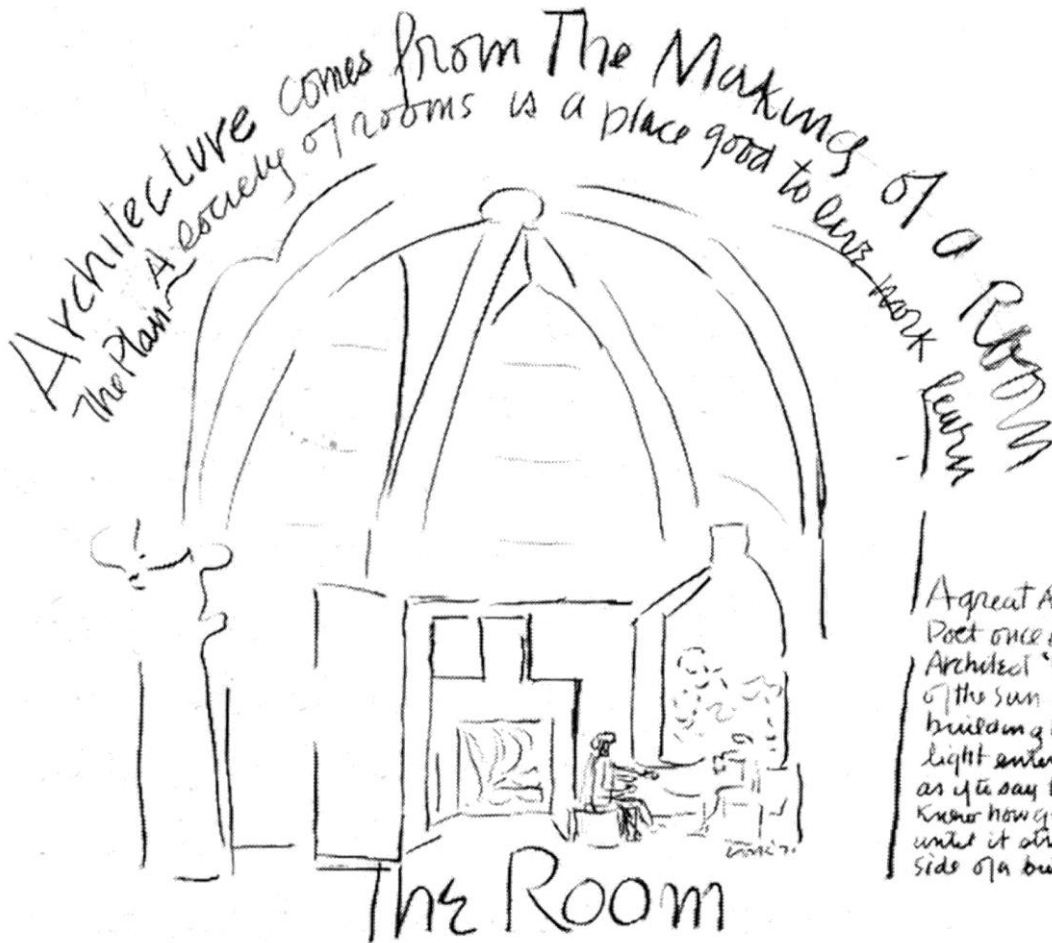 Architecture comes from The Making of a Room
The Plan A society of rooms is a place good to live work learn
A great A
Poet once
Architect
of the sun
building
light enter
as if to say
Knew how g
until it str
side of a bu
The Room